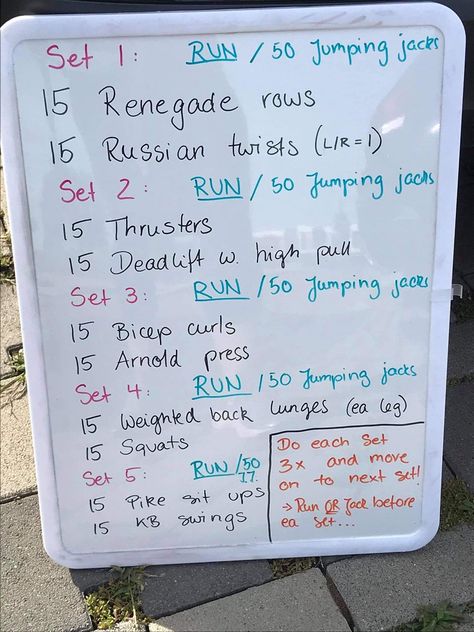 Set 1: RUN / 50 Jumping jacks
15 Renegade rows
15 Russian twists (L/R = 1)
Set 2: RUN / 50 Jumping jacks
15 Thrusters
15 Deadlift w. high pull
Set 3: RUN / 50 Jumping jacks
15 Bicep curls
15 Arnold press
Set 4: RUN / 50 Jumping jacks
15 Weighted back lunges (ea leg)
15 Squats
Set 5: RUN / 50
J.J.
15 Pike sit ups
15 KB swings
Do each set
3x and move
on to next set!
→ Run OR Jack before
ea set...